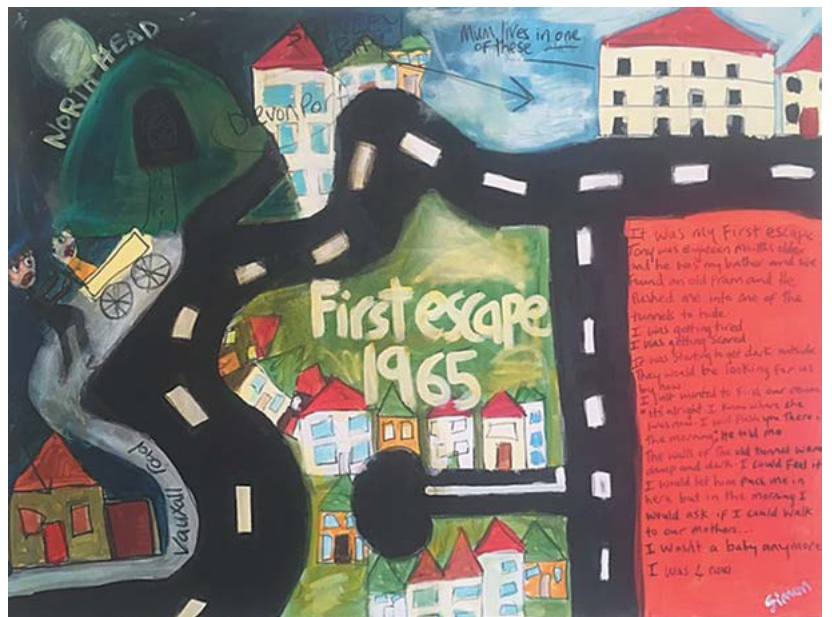 NORTH HEAD
Devonport
Mum lives in one
of these
First escape
1965
Vauxall road
It was my First escape
Tony was eighteen months older
and he was my brother and we
found an old Pram and He
Pushed me into one of the
tunnels to hide.
I was getting tired
I was getting scared
It was starting to get dark outside
They would be looking for us
by now
I just wanted to find our
"It's alright I know where she
was now. I will Push you There in
the morning" He told me
The walls of the old tunnel were
damp and dark. I could Feel it
I would let him Push me in
here but in the morning I
would ask if I could walk
to our mothers...
I wasn't a baby anymore
I was 4 now
Simon